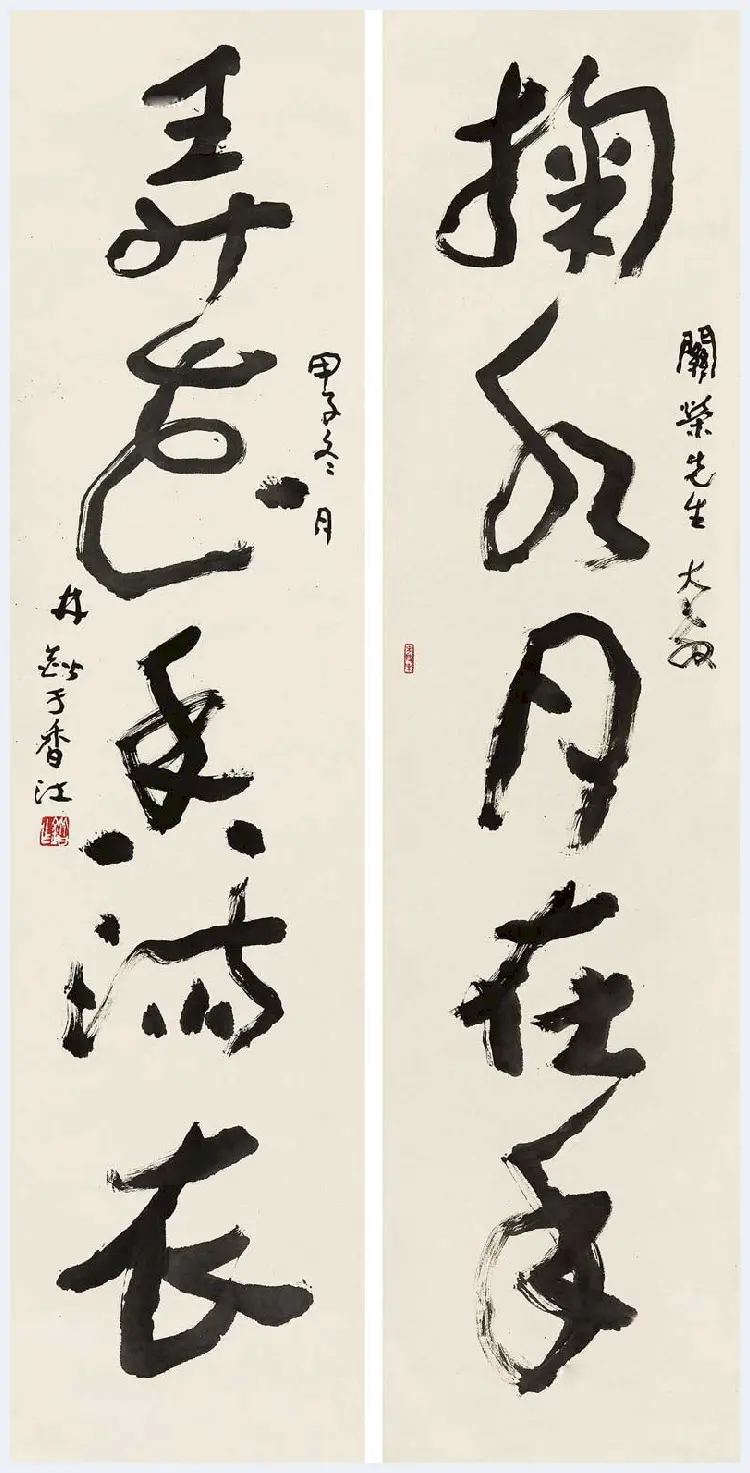 掬水月在手
關榮先生 大教
弄花香滿衣
甲子冬月
林鍇于香江